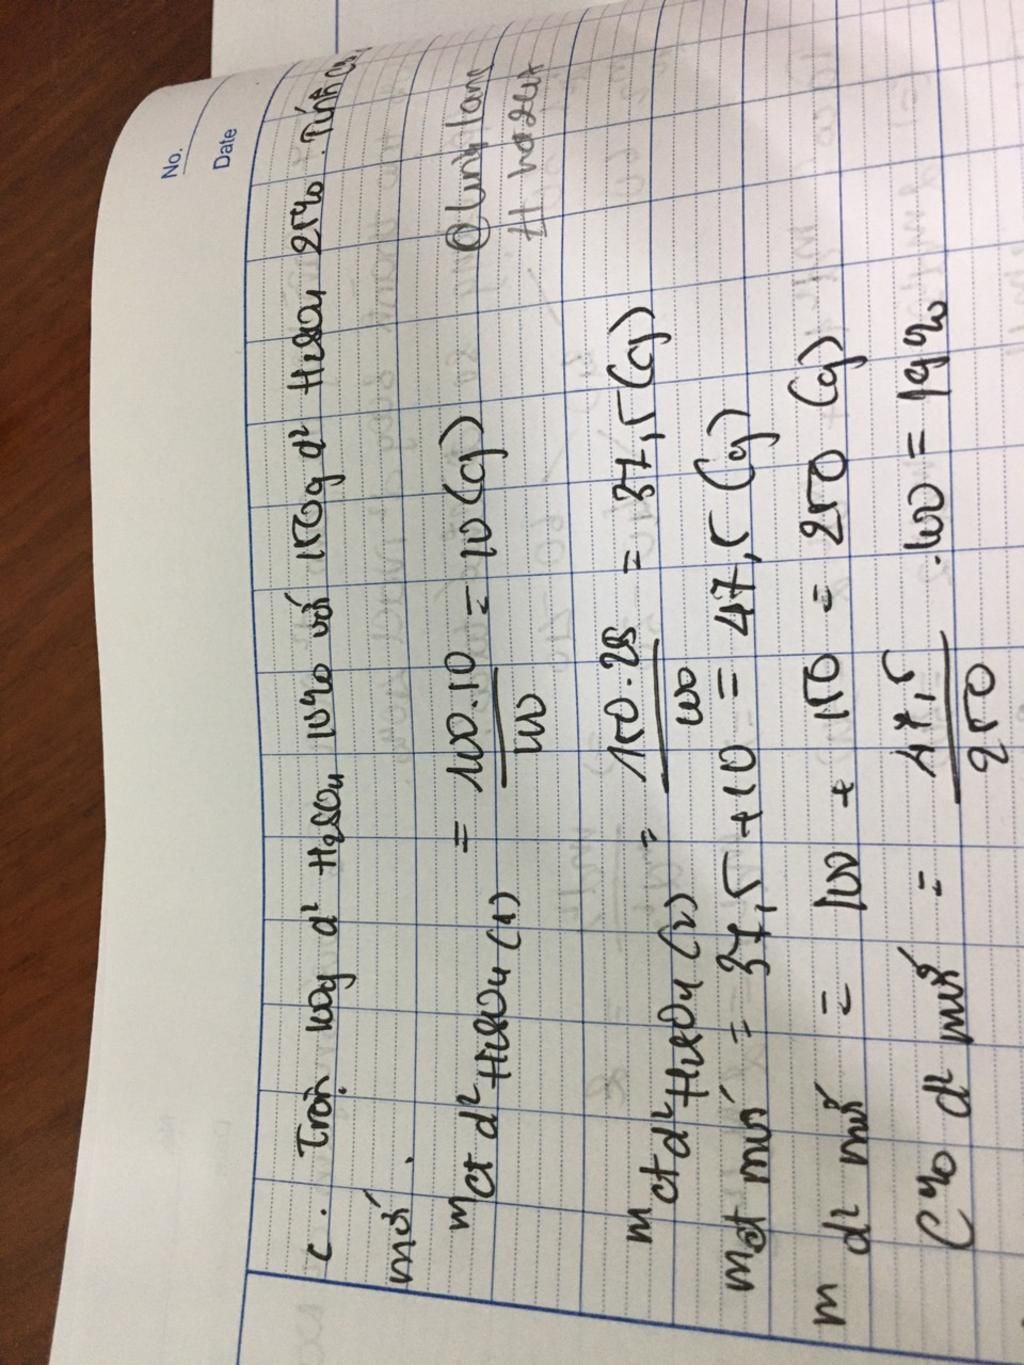 No.
Date
c. Trộn 100g d² H2SO4 10% với 150g d² H2SO4 25%. Tính C%
mới.
mct d² H2SO4 (1) = 100.10 / 100 = 10 (g)
@linhlam
mct d² H2SO4 (2) = 150.25 / 100 = 37,5 (g)
mct mới = 37,5 + 10 = 47,5 (g)
m d² mới = 100 + 150 = 250 (g)
C% d² mới = 47,5 / 250 .100 = 19%